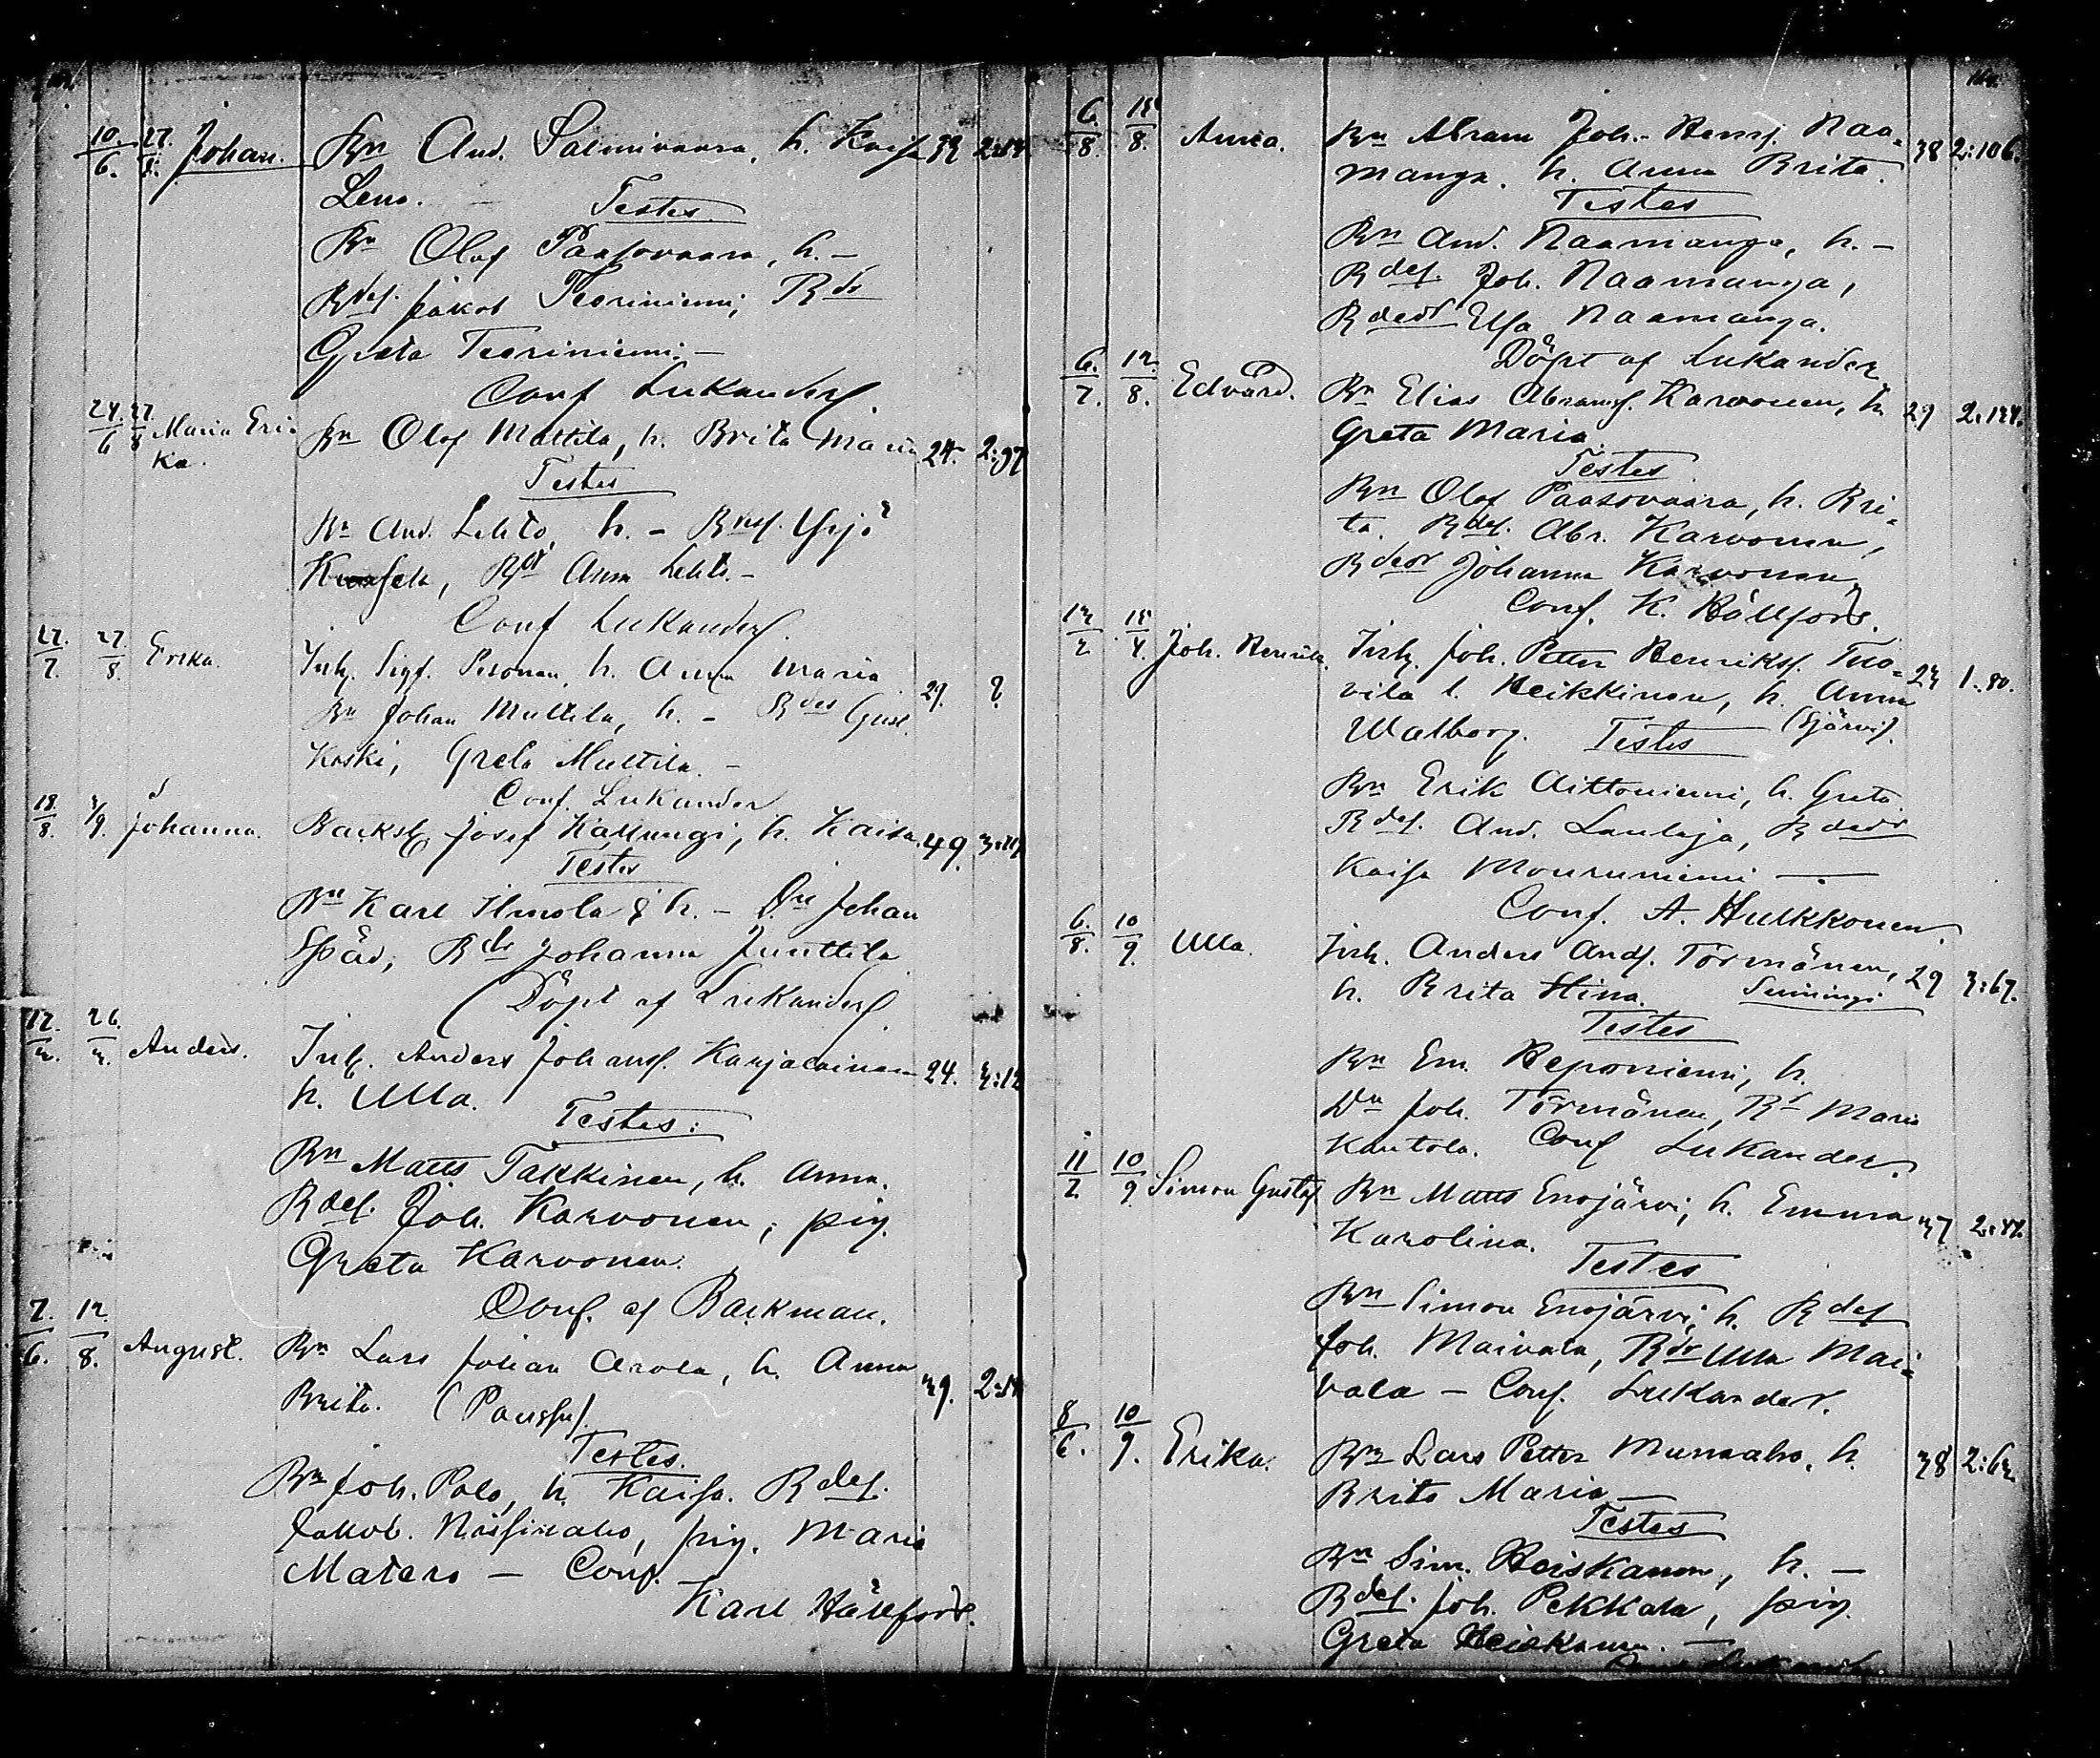 10/6. 27/8. Johan. Bn And. Salmivaara, h. Kaisa 39
Lena. Testes.
Bn Olof Paasovaara, h. –
Bdes. Jakob Teeriniemi, Bdr
Greta Teeriniemi. –
Conf Lukander.
24/6 27/8 Maria Eri- Bn Olof Mattila, h. Brita Maria 24. 2:97
ka.
Testes
Bn And. Lehto, h. – Bnsf. Yrjö
Bdr Anna Lehto. –
Conf Lukander.
17/7. 27/8. Erika. Inh. Sigf. Pesonen, h. Anna Maria 29. ?
Bn Johan Mulkila, h. – Bdes Gust.
Koski, Greta Mulkila. –
Conf. Lukander
18/8. 3/9. Johanna. Backst. Josef Kallungi, h. Kaisa. 49.
Testes
Bn Karl Ilmola & h. – Dn Johan
Späd, Bdr Johanna Junttila
Döpt af Lukander
26/3. Anders. Inh. Anders Johansf. Karjalainen 24. 3:12
h. Ulla.
Testes:
Bn Matts Takkinen, h. Anna.
Bdes. Joh. Karvonen, pig.
Greta Karvonen.
Conf. af Backman.
7./6. 12./8. August. Bn Lars Johan Arola, h. Anna 39.
Brita. (Paussu).
Testes.
Bn Joh. Palo, h. Kaisa. Bdes.
Jakob. Nissinaho, pig. Maria
Matero – Conf.
Karl Hällfors.
6./8. 15/8. Anna. Bn Abram Joh.-Henrs. Naa- 38 2:106.
manga. h. Anna Brita.
Testes
Bn And. Naamanga, h. –
Bdes. Joh. Naamanga,
Bdedr Elsa Naamanga.
Döpt af Lukander
6./7. 12./8. Edvard. Bn Elias Abramsf. Karvonen, h. 29 2:124.
Greta Maria.
Testes
Bn Olof Paasovaara, h. Bri-
ta. Bdes. Abr. Karvonen,
Bdedr Johanna Karvonen,
Conf. K. Hällfors.
13/2 15/4. Joh. Henrik. Inh. Joh. Petter Henriksf. Tuo- 23 1:80.
vila l. Heikkinen, h. Anna
Walborg. Testes
Bn Erik Aittoniemi, h. Greta.
Bdes. And. Laulaja, Bdedr
Kaisa Mouruniemi –
Conf. A. Hulkkonen.
6./8. 10/9. Ulla. Inh. Anders Andf. Törmänen, 29 3:67.
h. Brita Stina. Suiningi
Testes
Bn Em. Reponiemi, h.
Dn Joh. Törmänen, Bdr Maria
Kantola. Conf Lukander.
11/7. 10/9 Simon Gustaf Bn Matts Enojärvi, h. Emma 37
Karolina.
Testes
Bn Simon Enojärvi, h. Bdes
Joh. Maivala, Bdr Ulla Mai-
vala – Conf. Lukander.
8/6. 10/9. Erika. Bn Lars Petter Mursaho, h. 38 2:63.
Brita Maria –
Testes
Bn Sim. Heiskanen, h. –
Bdes. Joh. Pekkala, pig.
Greta Heiskanen. –